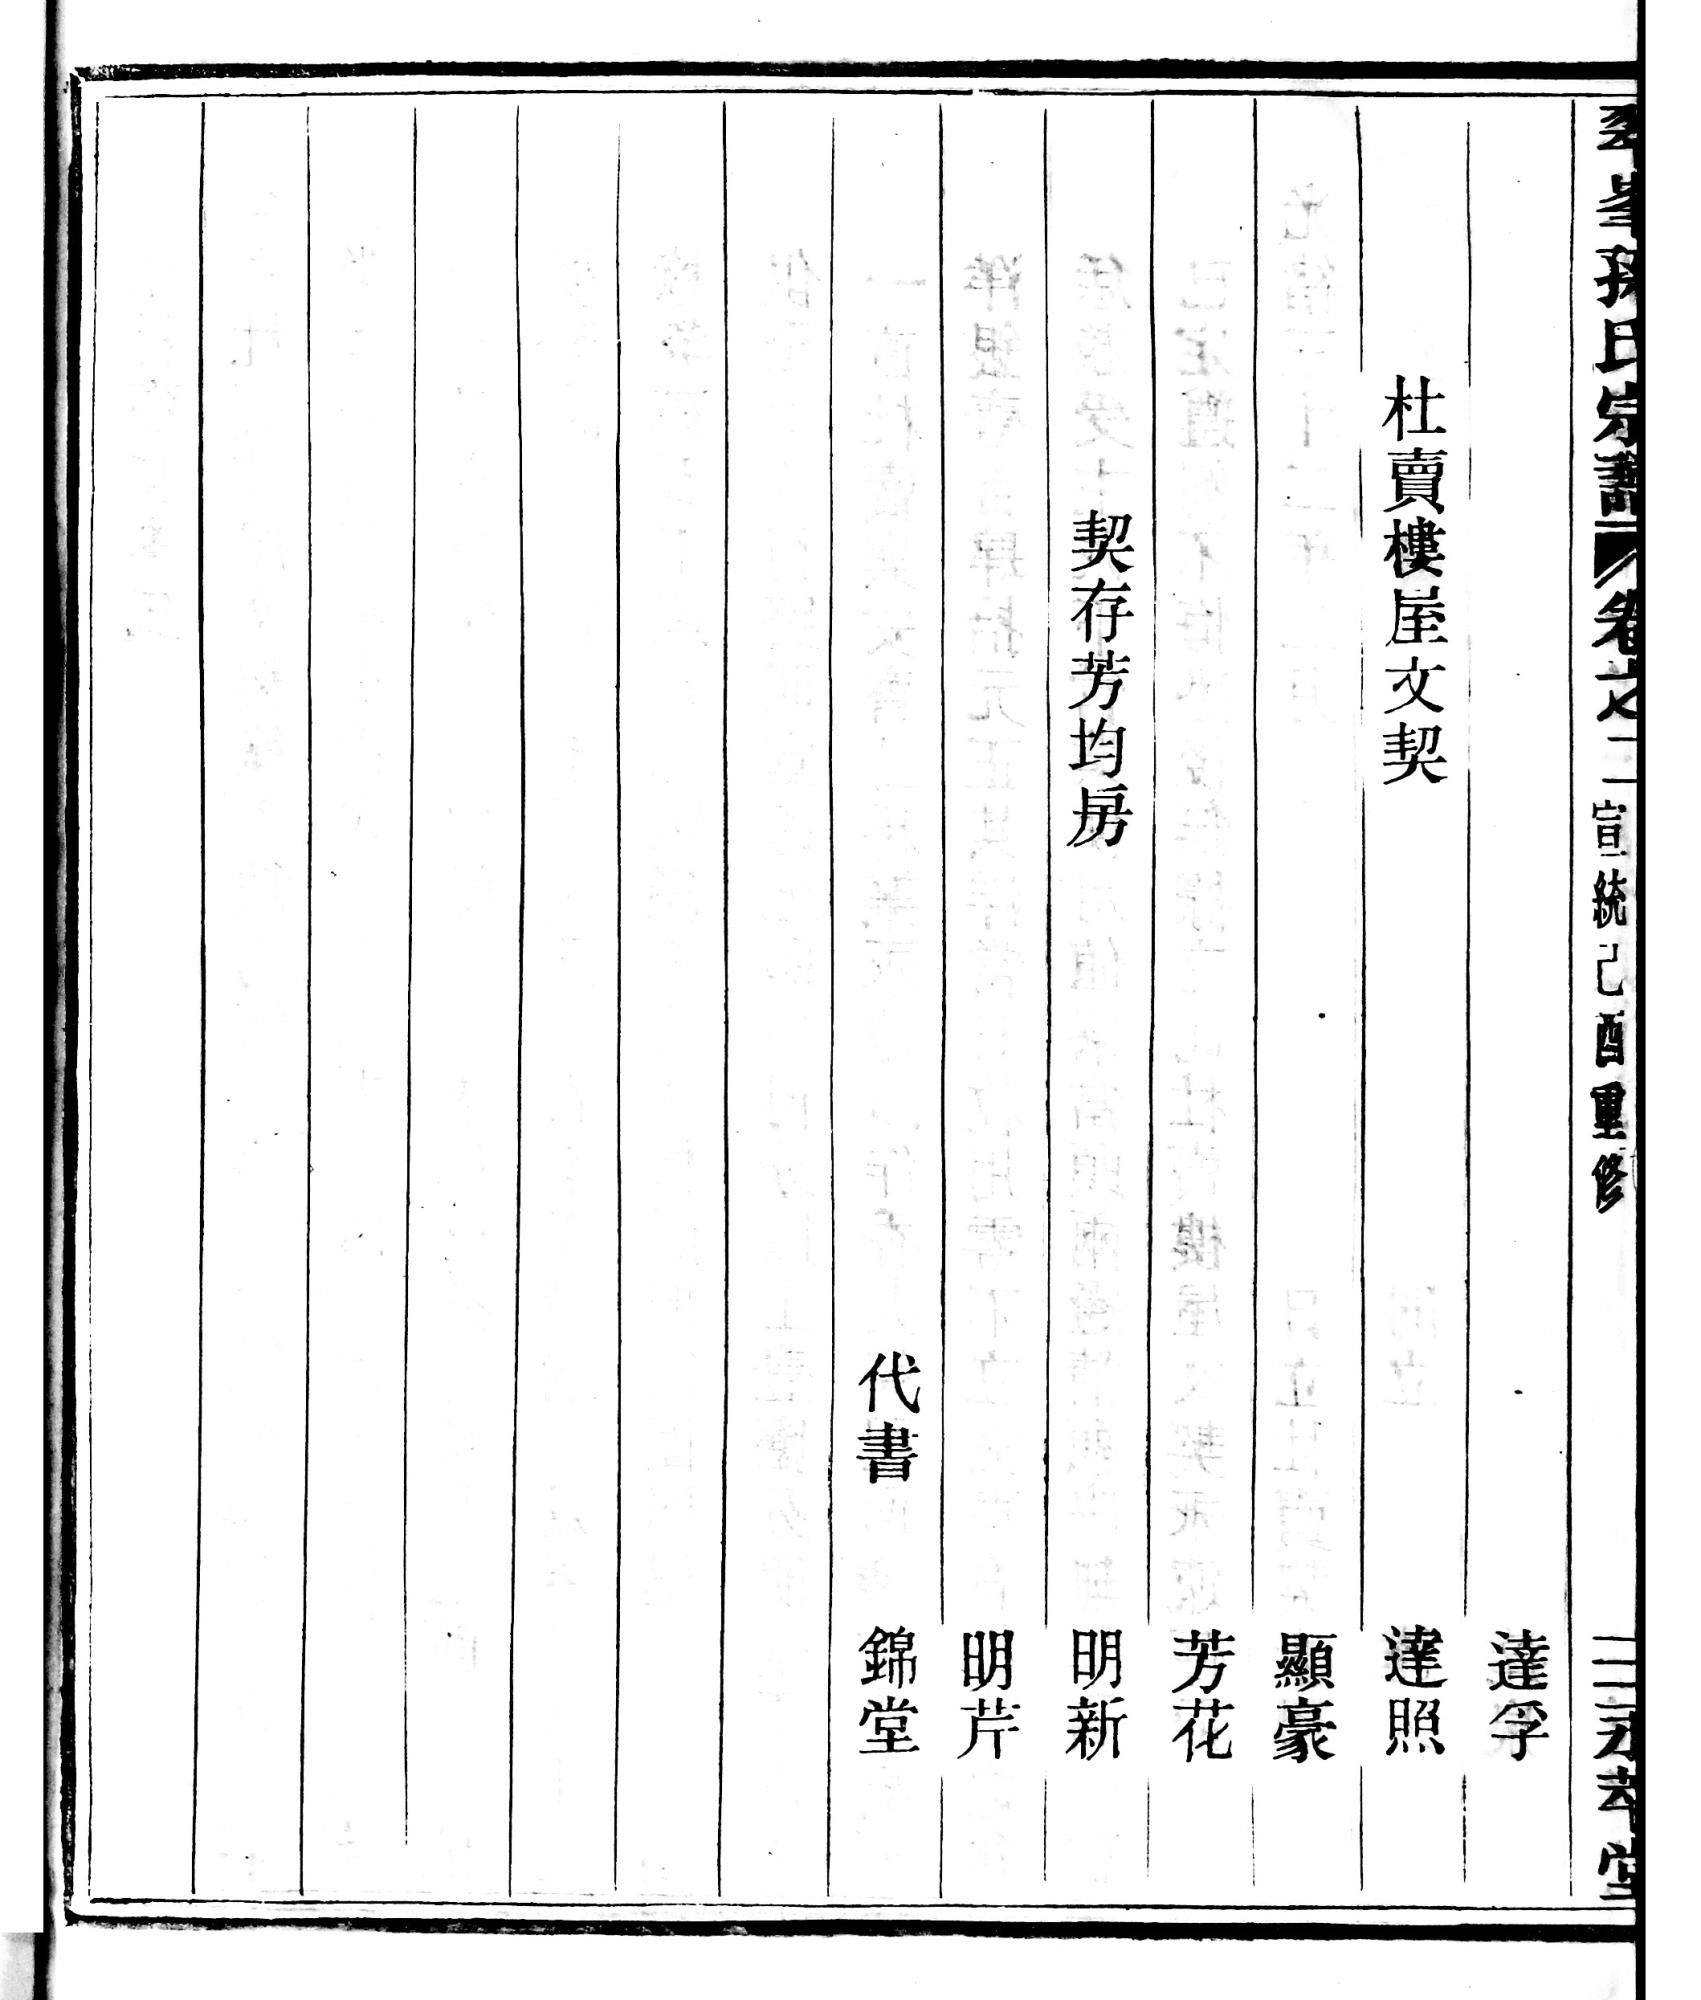 孫氏宗譜 卷之二 宣統己酉重修 二 永孝堂
達孚
杜賣樓屋文契 達照
顯豪
芳花
契存芳均房 明新
明芹
代書 錦堂